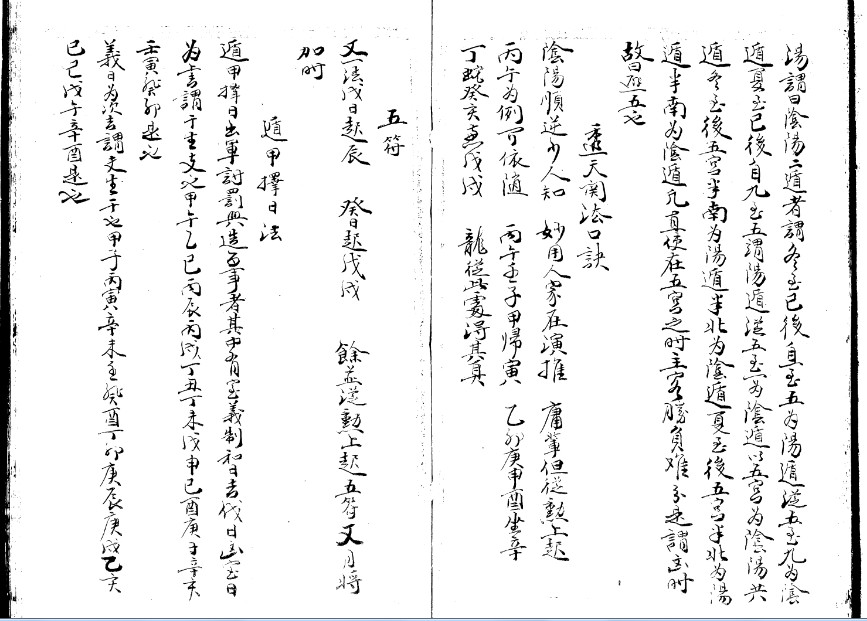 湯謂曰陰陽二遁者謂冬至已後自一至五为陽遁從五至九为陰
遁夏至已後自九至五謂陽遁從五至一为陰遁以五宮为陰陽共
遁冬至後五宮半南为陽遁半北为陰遁夏至後五宮半北为陽
遁半南为陰遁凡直使在五宮之时主客勝負难分是謂出时
故曰五也
透天関法口訣
陰陽順逆少人知 妙用人家在演推 庸輩但從勲上起
丙午为例可依随 丙午壬子甲帰寅 乙卯庚申酉坐辛
丁蛇癸亥戊戌 龍從此處得其真
五符
又一法戊日起辰 癸日起戊戌 餘並從勲上起五符又月将
加时
遁甲擇日法
遁甲擇日出軍討罰興造百事者其中有宝義制和日吉伐日凶宝日
为吉謂干生支也甲午乙巳丙辰丙戌丁丑丁未戊申己酉庚子辛亥
壬寅癸卯是也
義日为次吉謂支生干也甲子丙寅辛未壬癸酉丁卯庚辰庚戌乙亥
己巳戊午辛酉是也